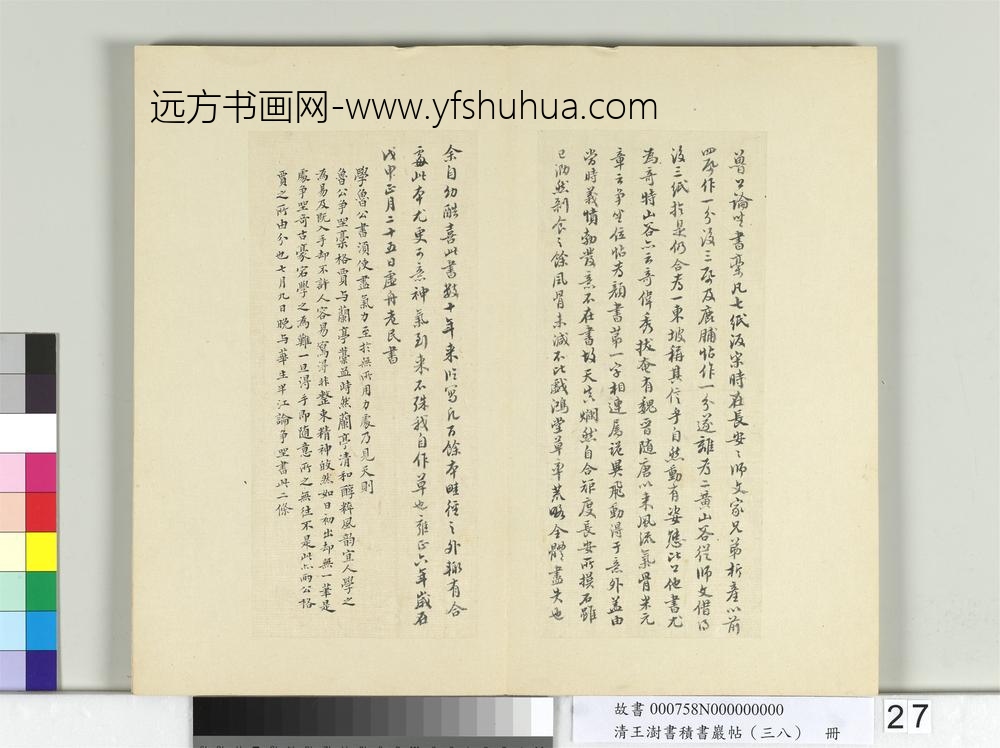 远方书画网-www.yfshuhua.com
魯公論坐書稾凡七紙汲宋時在長安安師文家兄弟析產以前
四死作一分後三死及鹿脯帖作一分遂離為二黃山谷從師文借得
後三紙於是仍合為一東坡稱其信手自然動有姿態比公他書尤
為奇特山谷亦云奇偉秀拔奄有魏晉隨唐以來風流氣骨米元
章云爭坐位帖為顏書第一字相連屬詭異飛動得于意外蓋由
當時義憤勃發意不在書故天真爛然自合矩度長安所摸石雖
已泐然剝食之餘風骨未減不比戲鴻堂草率荒略全體盡失也
余自幼酷喜此書數十年來臨寫凡百餘本畦徑之外頗有合
處此本尤更可意神氣到來不殊我自作草也雍正六年歲在
戊申正月二十五日虛舟老民書
學魯公書須使盡氣力至於無所用力處乃見天則
魯公爭坐稾格賈与蘭亭藁益時然蘭亭清和醇粹風韵宜人學之
為易及既入手却不許人容易寫得非整束精神皎然如日初出却無一筆是
處爭坐奇古豪宕學之為難一旦得手即隨意所之無往不是此亦兩公恪
賈之所由分也七月九日晚与華生半江論爭坐書此二條
故書 000758N000000000
清王澍書積書巖帖（三八） 冊
27